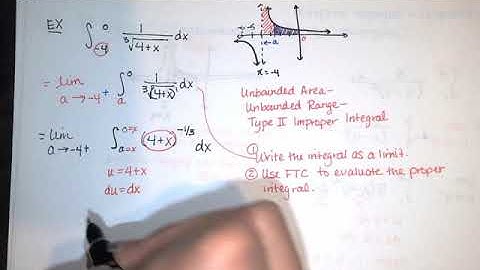 EX ∫₋₄⁰ 1/∛(4+x) dx
= lim a→-4⁺ ∫ₐ⁰ 1/∛(4+x) dx
= lim a→-4⁺ ∫ₐ₌ₓ⁰⁼ˣ (4+x)^(-1/3) dx
u = 4+x
du = dx
x=-4
Unbounded Area-
Unbounded Range-
Type II Improper Integral
① Write the integral as a limit.
② Use FTC to evaluate the proper
integral.